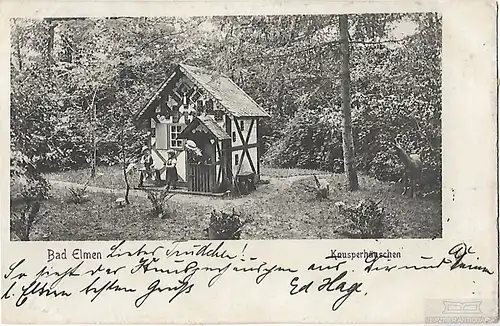 Bad Elmen Liebes Trudchen! Knusperhäuschen
So sieht das Knusperhäuschen aus. Dir und Deinen
l. Eltern besten Gruß Ed